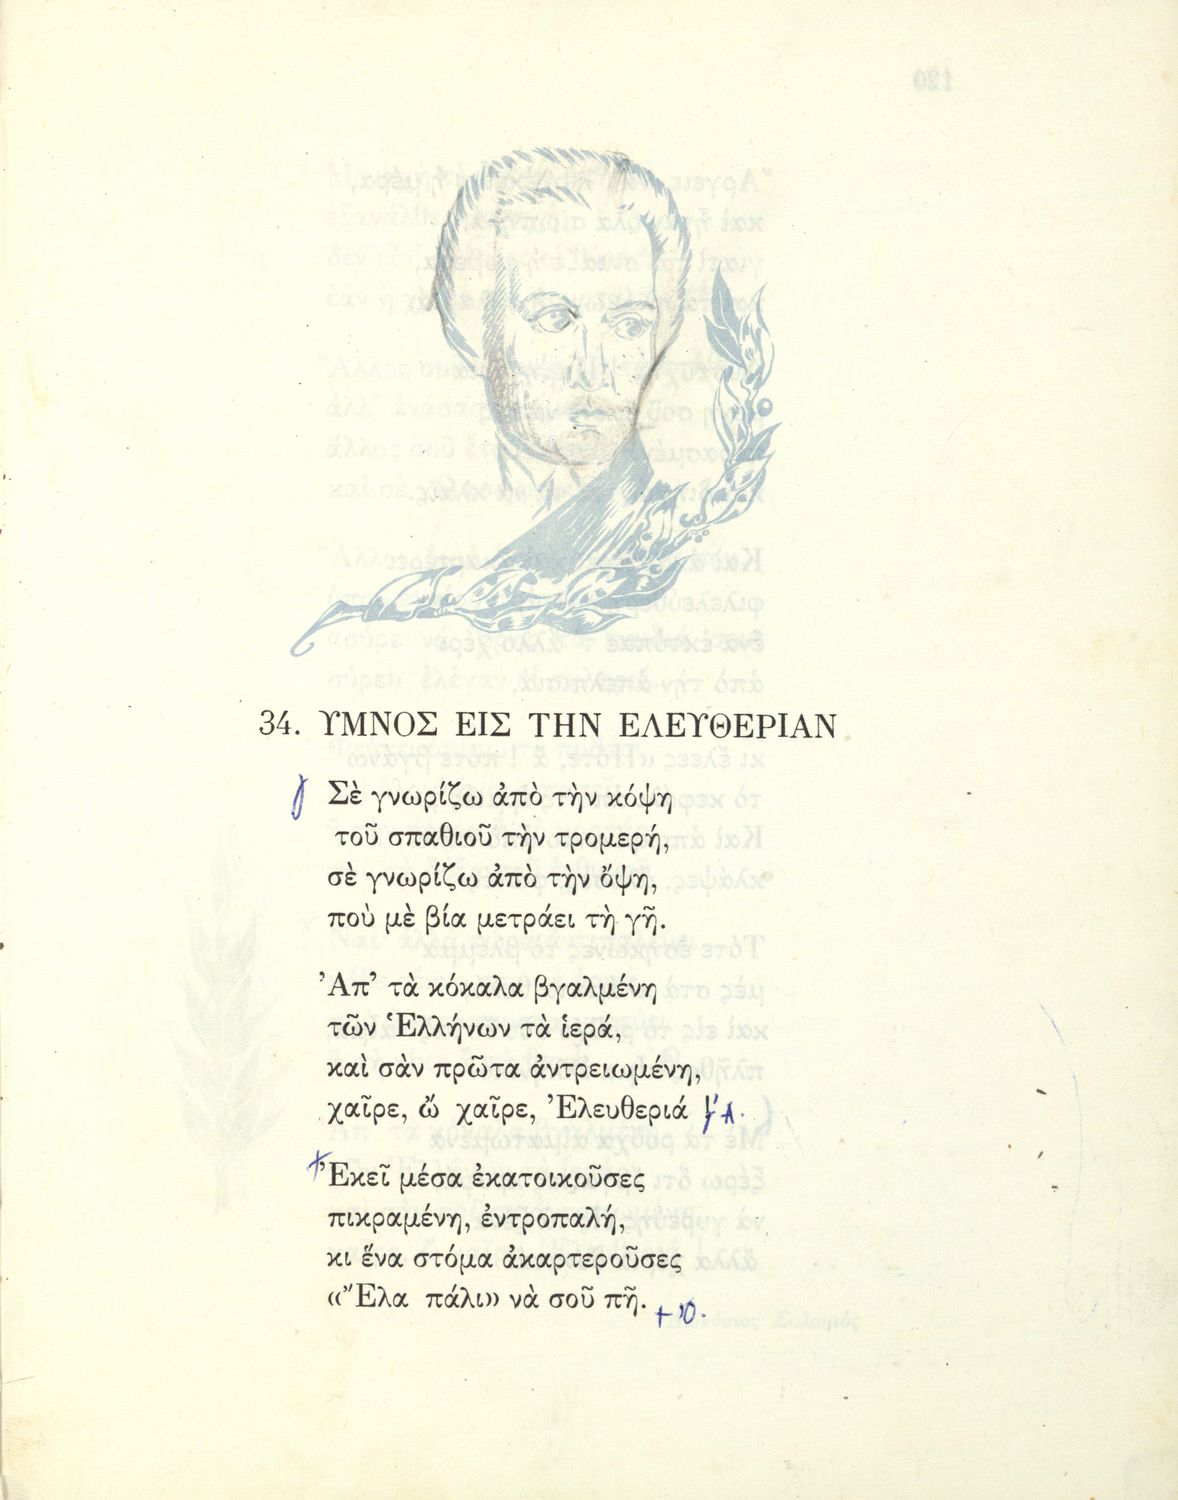 34. ΥΜΝΟΣ ΕΙΣ ΤΗΝ ΕΛΕΥΘΕΡΙΑΝ
Σὲ γνωρίζω ἀπὸ τὴν κόψη
τοῦ σπαθιοῦ τὴν τρομερή,
σὲ γνωρίζω ἀπὸ τὴν ὄψη,
ποὺ μὲ βία μετράει τὴ γῆ.
Ἀπ’ τὰ κόκαλα βγαλμένη
τῶν Ἑλλήνων τὰ ἱερά,
καὶ σὰν πρῶτα ἀντρειωμένη,
χαῖρε, ὤ χαῖρε, Ἐλευθεριά
Ἐκεῖ μέσα ἐκατοικοῦσες
πικραμένη, ἐντροπαλή,
κι ἕνα στόμα ἀκαρτεροῦσες
«Ἔλα πάλι» νὰ σοῦ πῆ.